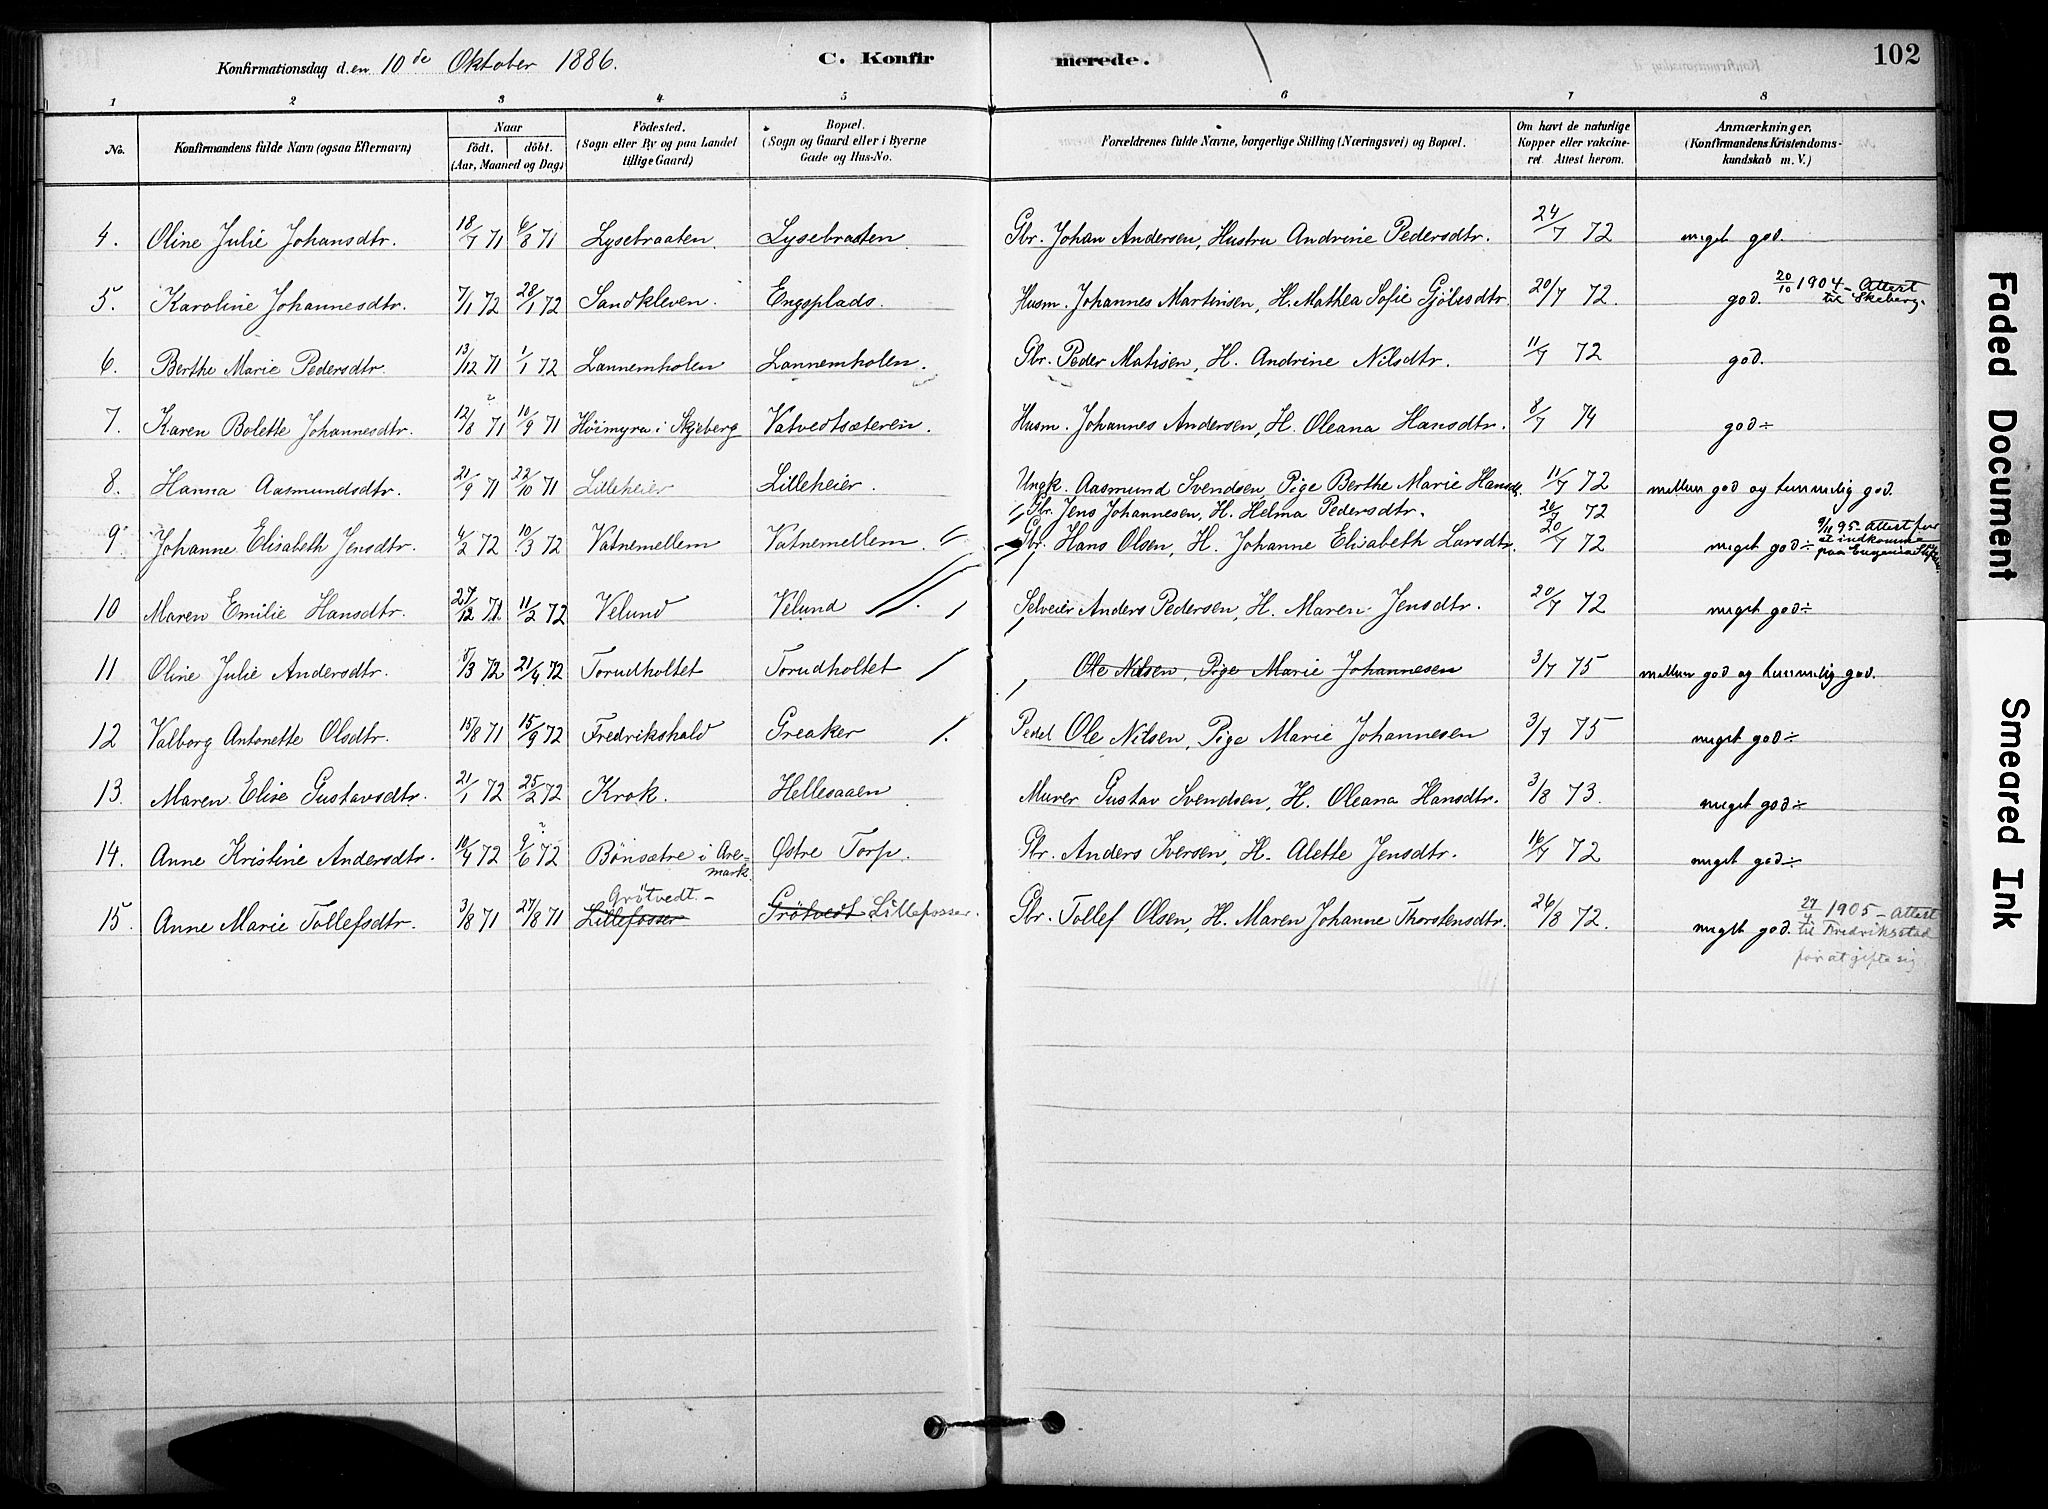 Konfirmationsdag den 10de Oktober 1886. C. Konfirmerede. 102
1 2 3 4 5 6 7 8
No. Konfirmandens fulde Navn (ogsaa Efternavn) Naar födt. döbt. (Aar, Maaned og Dag) Födested. (Sogn eller By og paa Landet tillige Gaard) Bopæl. (Sogn og Gaard eller i Byerne Gade og Hus-No. Forældrenes fulde Navne, borgerlige Stilling (Næringsvei) og Bopæl. Om havt de naturlige Kopper eller vakcineret. Attest herom. Anmærkninger. (Konfirmandens Kristendomskundskab m. V.)
4. Oline Julie Johansdtr. 18/7 71 6/8 71 Lysebraaten. Lysebraaten. Gbr. Johan Andersen, Hustru Andrine Pedersdtr. 24/7 72 meget god.
5. Karoline Johannesdtr. 7/1 72 28/1 72 Sandkleven. Engsplads. Husm. Johannes Martinsen, H. Mathea Sofie Gjölsdtr. 20/7 72. god. 20/10 1904 - Attest til Skeberg.
6. Berthe Marie Pedersdtr. 13/12 71 1/1 72 Lannemholen Lannemholen. Gbr. Peder Matisen, H. Andrine Nilsdtr. 11/7 72 god.
7. Karen Bolette Johannesdtr. 12/8 71 10/9 71 Höimyra i Skjeberg Vatvedtsæteren. Husm. Johannes Andersen, H. Oleana Hansdtr. 8/7 74 god ÷
8. Hanna Aasmundsdtr. 21/9 71 22/10 71 Lilleheier Lilleheier. Ungk. Aasmund Svendsen, Pige Berthe Marie Hansdt. 11/7 72 mellem god og temmelig god.
Gbr. Jens Johannesen, H. Helma Pedersdtr. 20/7 72
9. Johanne Elisabeth Jensdtr. 4/2 72 10/3 72 Vatnemellem Vatnemellem. Gbr. Hans Olsen, H. Johanne Elisabeth Larsdtr. 20/7 72 meget god ÷ 9/11 95 - Attest for at indkomme paa Eugenia Stift.
10 Maren Emilie Hansdtr. 27/12 71 11/2 72 Velund Velund Selveier Anders Pedersen, H. Maren Jensdtr. 20/7 72 meget god ÷
11 Oline Julie Andersdtr. 5/3 72 21/4 72 Torudholtet Torudholtet Ole Nilsen, Pige Marie Johannesen 3/7 75 mellem god og temmelig god.
12 Valborg Antonette Olsdtr. 15/8 71 15/9 72 Fredrikshald Greaker Pedel Ole Nilsen, Pige Marie Johannesen 3/7 75 meget god ÷
13. Maren Elise Gustavsdtr. 21/1 72 25/2 72 Krok. Hellesaaen Murer Gustav Svendsen, H. Oleana Hansdtr. 3/8 73. meget god ÷
14. Anne Kristine Andersdtr. 10/4 72 9/6 72 Bönsætre i Aremark. Østre Torp. Gbr. Anders Iversen, H. Alette Jensdtr. 16/7 72 meget god ÷
15. Anne Marie Tollefsdtr. 3/8 71 27/8 71 Grötvedt. Lillefosser Grötvedt Lillefosser. Gbr. Tollef Olsen, H. Maren Johanne Thorstensdtr. 26/8 72. meget god. 27/4 1905 - Attest til Fredriksstad for at gifte sig
Faded Document
Smeared Ink